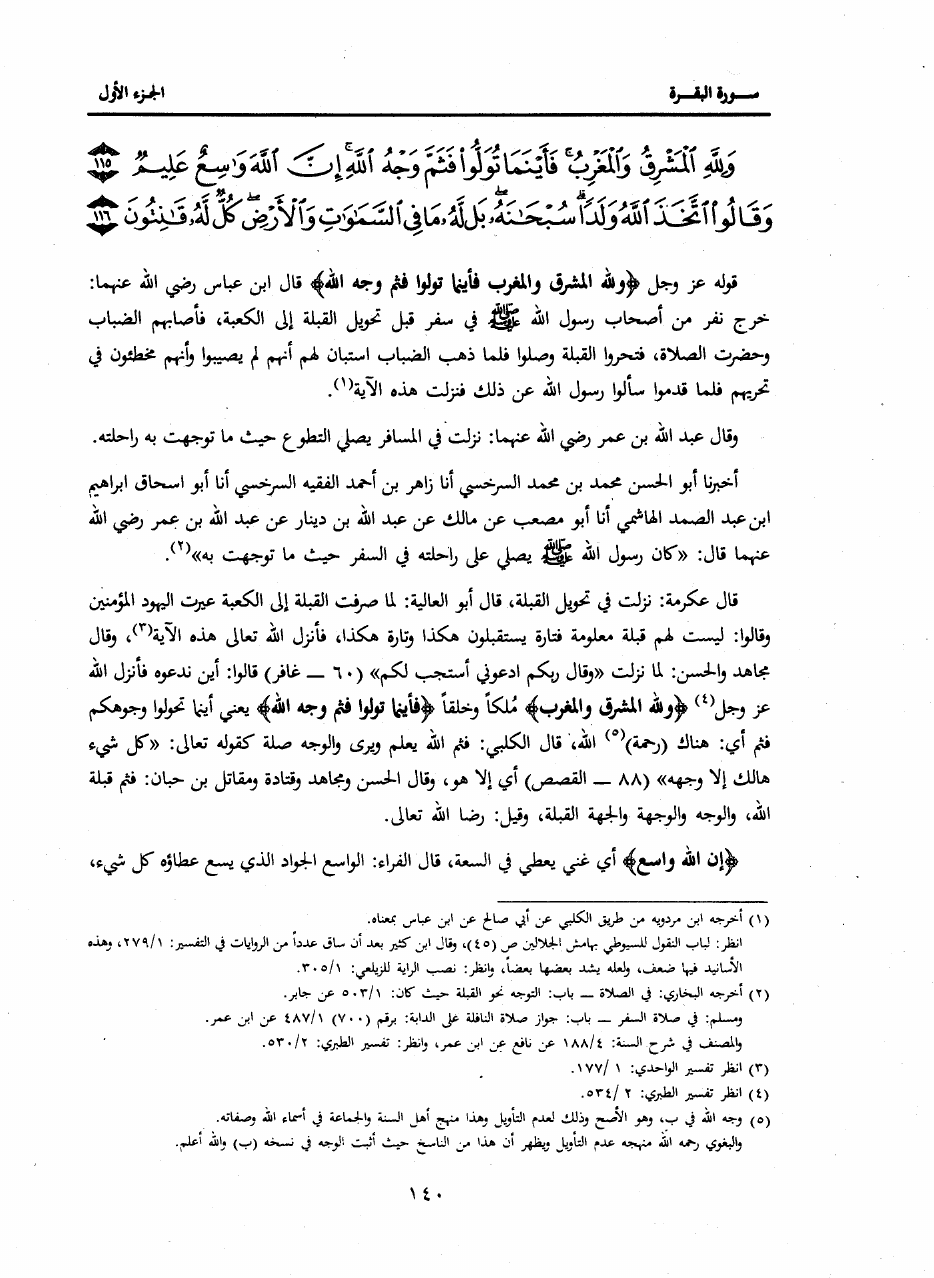 سورة البقرة
الجزء الأول
وَلِلَّهِ الْمَشْرِقُ وَالْمَغْرِبُ ۚ فَأَيْنَمَا تُوَلُّوا فَثَمَّ وَجْهُ اللَّهِ ۚ إِنَّ اللَّهَ وَاسِعٌ عَلِيمٌ ١١٥
وَقَالُوا اتَّخَذَ اللَّهُ وَلَدًا ۗ سُبْحَانَهُ ۖ بَل لَّهُ مَا فِي السَّمَاوَاتِ وَالْأَرْضِ ۖ كُلٌّ لَّهُ قَانِتُونَ ١١٦
قوله عز وجل ﴿ولله المشرق والمغرب فأينما تولوا فثم وجه الله﴾ قال ابن عباس رضي الله عنهما:
خرج نفر من أصحاب رسول الله ﷺ في سفر قبل تحويل القبلة إلى الكعبة، فأصابهم الضباب
وحضرت الصلاة، فتحروا القبلة وصلوا فلما ذهب الضباب استبان لهم أنهم لم يصيبوا وأنهم مخطئون في
تحريهم فلما قدموا سألوا رسول الله عن ذلك فنزلت هذه الآية(١).
وقال عبد الله بن عمر رضي الله عنهما: نزلت في المسافر يصلي التطوع حيث ما توجهت به راحلته.
أخبرنا أبو الحسن محمد بن محمد السرخسي أنا زاهر بن أحمد الفقيه السرخسي أنا أبو اسحاق ابراهيم
ابن عبد الصمد الهاشمي أنا أبو مصعب عن مالك عن عبد الله بن دينار عن عبد الله بن عمر رضي الله
عنهما قال: «كان رسول الله ﷺ يصلي على راحلته في السفر حيث ما توجهت به»(٢).
قال عكرمة: نزلت في تحويل القبلة، قال أبو العالية: لما صرفت القبلة إلى الكعبة عيرت اليهود المؤمنين
وقالوا: ليست لهم قبلة معلومة فتارة يستقبلون هكذا وتارة هكذا، فأنزل الله تعالى هذه الآية(٣)، وقال
مجاهد والحسن: لما نزلت «وقال ربكم ادعوني أستجب لكم» (٦٠ ــ غافر) قالوا: أين ندعوه فأنزل الله
عز وجل(٤) ﴿ولله المشرق والمغرب﴾ مُلكاً وخلقاً ﴿فأينما تولوا فثم وجه الله﴾ يعني أينما تحولوا وجوهكم
فثم أي: هناك (رحمة)(٥) الله، قال الكلبي: فثم الله يعلم ويرى والوجه صلة كقوله تعالى: «كل شيء
هالك إلا وجهه» (٨٨ ــ القصص) أي إلا هو، وقال الحسن ومجاهد وقتادة ومقاتل بن حبان: فثم قبلة
الله، والوجه والوجهة والجهة القبلة، وقيل: رضا الله تعالى.
﴿إن الله واسع﴾ أي غني يعطي في السعة، قال الفراء: الواسع الجواد الذي يسع عطاؤه كل شيء،
(١) أخرجه ابن مردويه من طريق الكلبي عن أبي صالح عن ابن عباس بمعناه.
انظر: لباب النقول للسيوطي بهامش الجلالين ص (٤٥)، وقال ابن كثير بعد أن ساق عدداً من الروايات في التفسير: ٢٧٩/١، وهذه
الأسانيد فيها ضعف، ولعله يشد بعضها بعضاً، وانظر: نصب الراية للزيلعي: ٣٠٥/١.
(٢) أخرجه البخاري: في الصلاة ــ باب: التوجه نحو القبلة حيث كان: ٥٠٣/١ عن جابر.
ومسلم: في صلاة السفر ــ باب: جواز صلاة النافلة على الدابة: برقم (٧٠٠) ٤٨٧/١ عن ابن عمر.
والمصنف في شرح السنة: ١٨٨/٤ عن نافع عن ابن عمر، وانظر: تفسير الطبري: ٥٣٠/٢.
(٣) انظر تفسير الواحدي: ١ /١٧٧.
(٤) انظر تفسير الطبري: ٢ /٥٣٤.
(٥) وجه الله في ب، وهو الأصح وذلك لعدم التأويل وهذا منهج أهل السنة والجماعة في أسماء الله وصفاته.
والبغوي رحمه الله منهجه عدم التأويل ويظهر أن هذا من الناسخ حيث أثبت الوجه في نسخه (ب) والله أعلم.
١٤٠